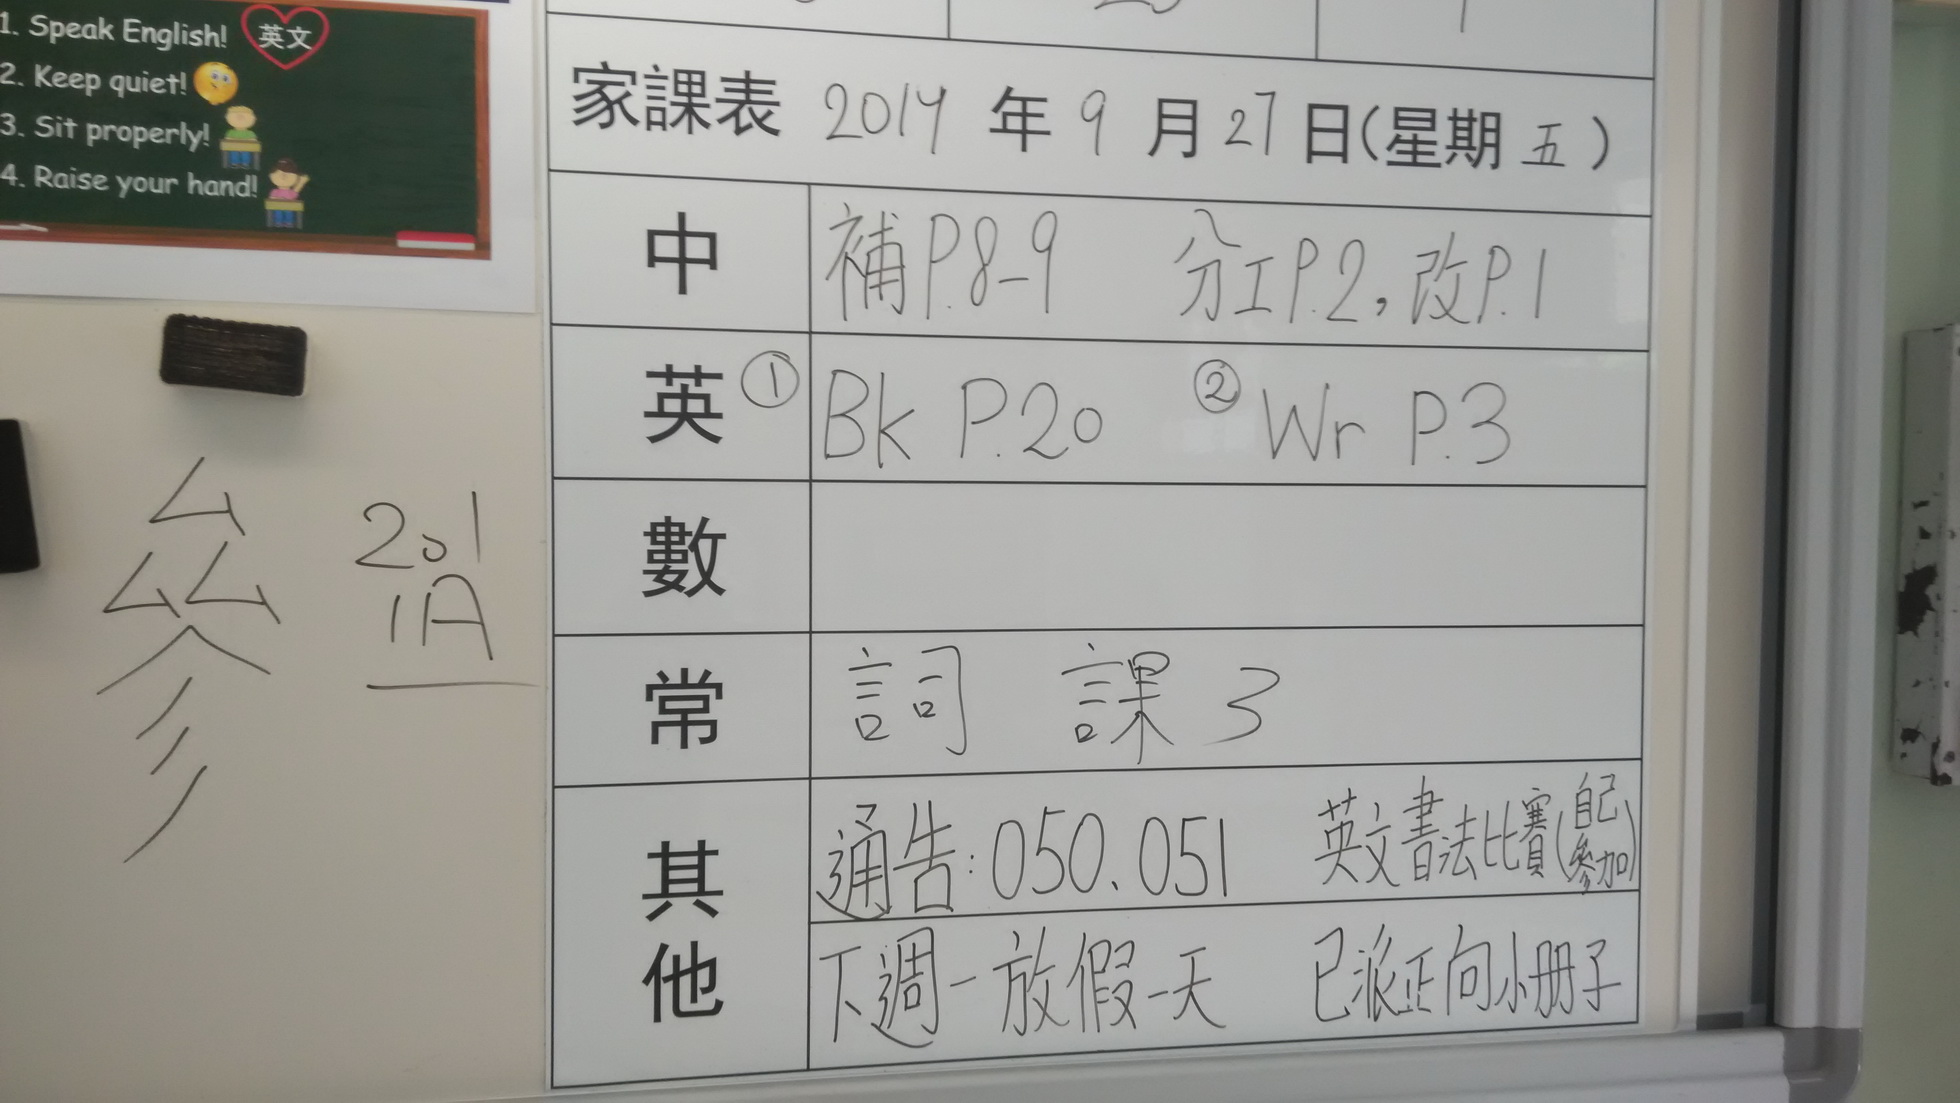 1. Speak English! 英文
2. Keep quiet!
3. Sit properly!
4. Raise your hand!
家課表 2019 年 9 月 27 日(星期 五)
中 補P.8-9 分工P.2,改P.1
英 ① Bk P.20 ② Wr P.3
數
常 詞 課 3
其他
通告:050.051 英文書法比賽(自己參加)
下週一放假一天 已派正向小册子
參
201
1A